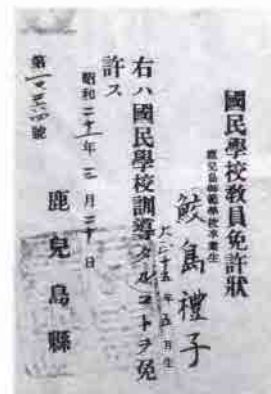 國民學校教員免許狀
鹿兒島師範學校卒業生
鮫島禮子
大正十五年五月生
右ハ國民學校訓導タルコトヲ免
許ス
昭和二十一年三月三十日
鹿兒島縣